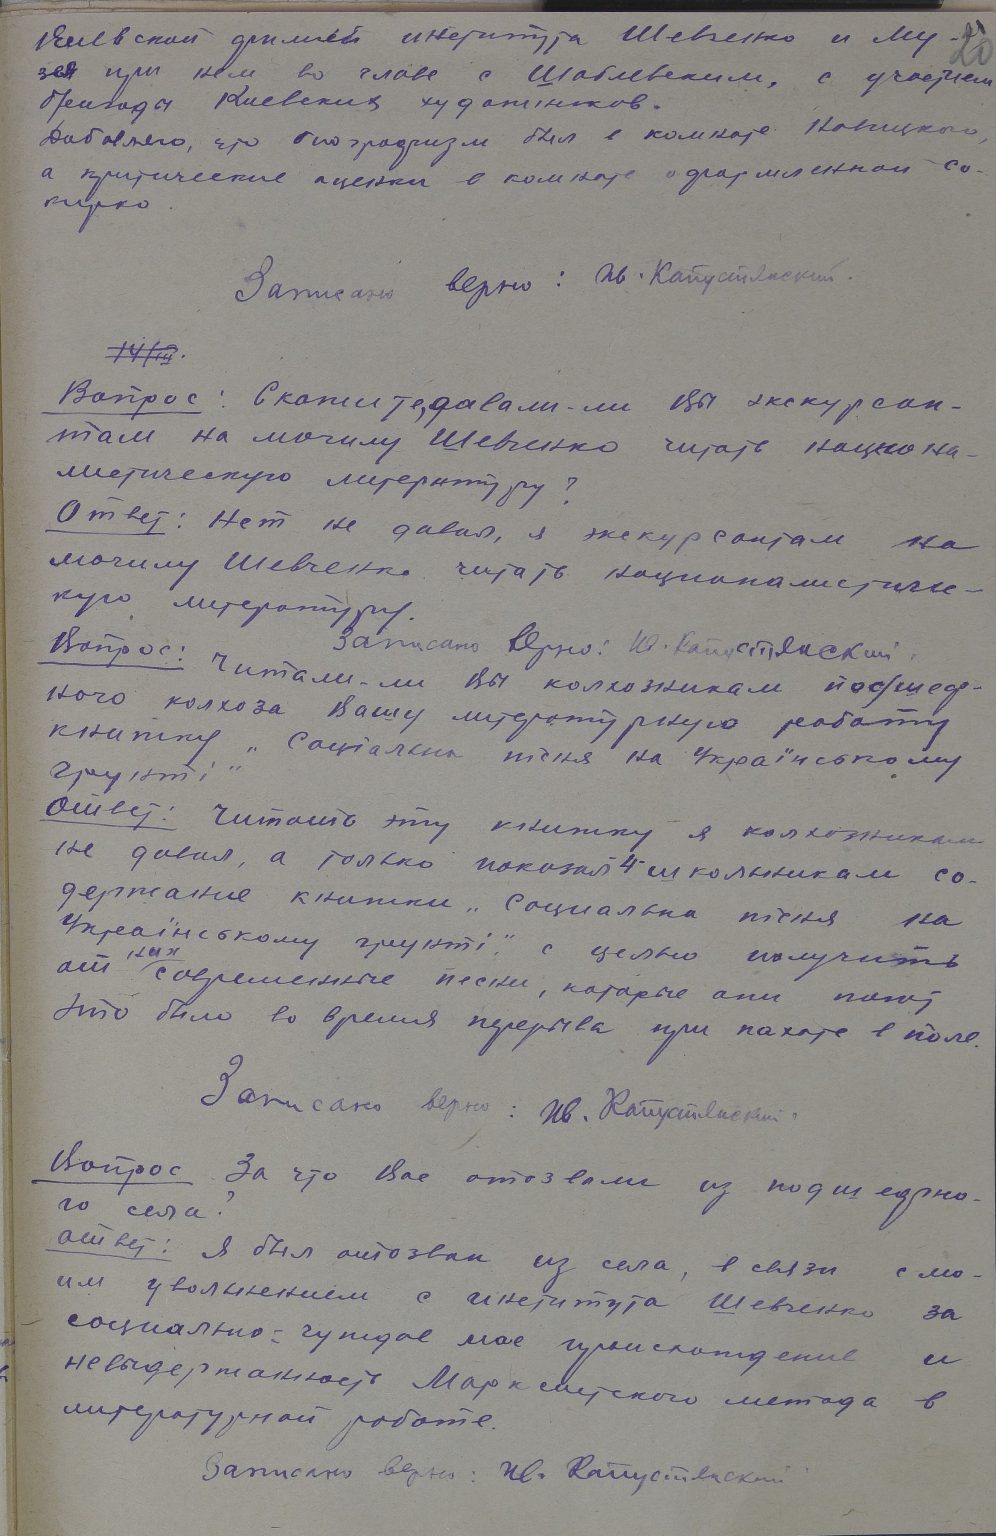 20
Киевской филией института Шевченко и Му-
зея при нем во главе с Шаблевским, с участием
бригады Киевских художников.
Добавляю, что биографизм был в комнате Новицкого,
а критические оценки в комнате оформленной Со-
кирко.
Записано верно: Ив. Капустянский.
14/III.
Вопрос: Скажите, давали-ли Вы экскурсан-
там на могилу Шевченко читать национа-
листическую литературу?
Ответ: Нет не давал, я экскурсантам на
могилу Шевченко читать националистичес-
кую литературу.
Записано Верно: Ив. Капустянский.
Вопрос: Читали-ли Вы колхозникам подшеф-
ного колхоза Вашу литературную работу
книжку „Соціальна пісня на Українському
грунті"
Ответ: Читать эту книжку я колхозникам
не давал, а только показал 4 школьникам со-
держание книжки „Социальна пісня на
Українському грунті", с целью получить
от них современные песни, которые они поют
Это было во время перерыва при пахоте в поле.
Записано верно: Ив. Капустянский.
Вопрос За что Вас отозвали из подшефно-
го села?
Ответ: Я был отозван из села, в связи с мо-
им увольнением с института Шевченко за
социально-чуждое мое происхождение и
невыдержанность Марксистского метода в
литературной работе.
Записано верно: Ив. Капустянский